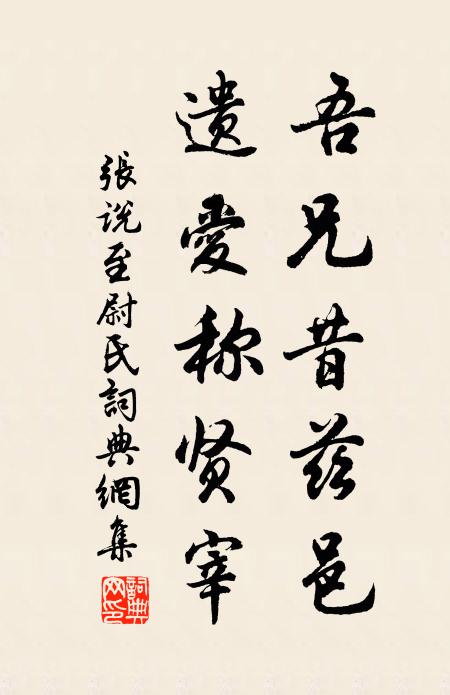 吾兄昔兹邑
遗爱称贤宰
張说至尉氏詞典網集
詞典网印